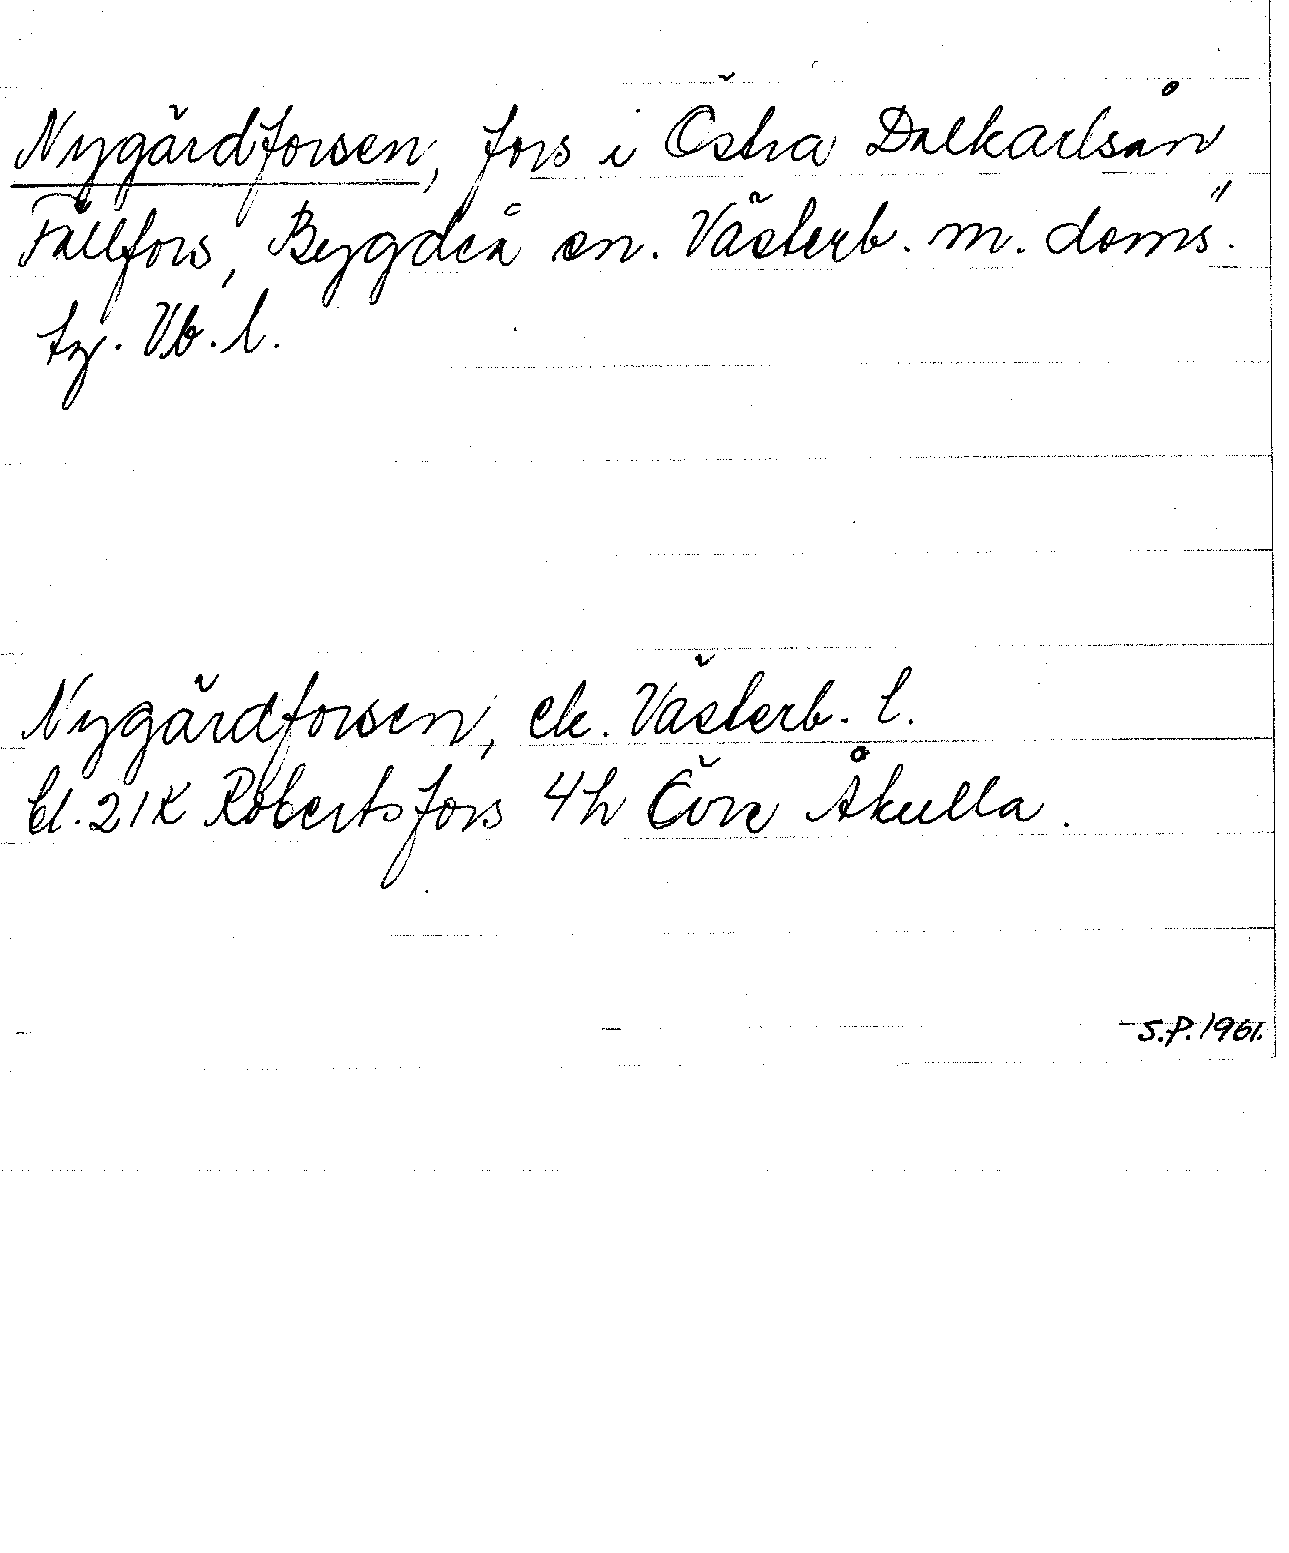 Nygårdforsen, fors i Östra Dalkarlsån,
Fällfors, Bygdeå sn. Västerb. m. doms.
tg. Vb. l.
Nygårdforsen, ek. Västerb. l.
bl. 21K Robertsfors 4h Övre Åkulla.
S.P. 1961.